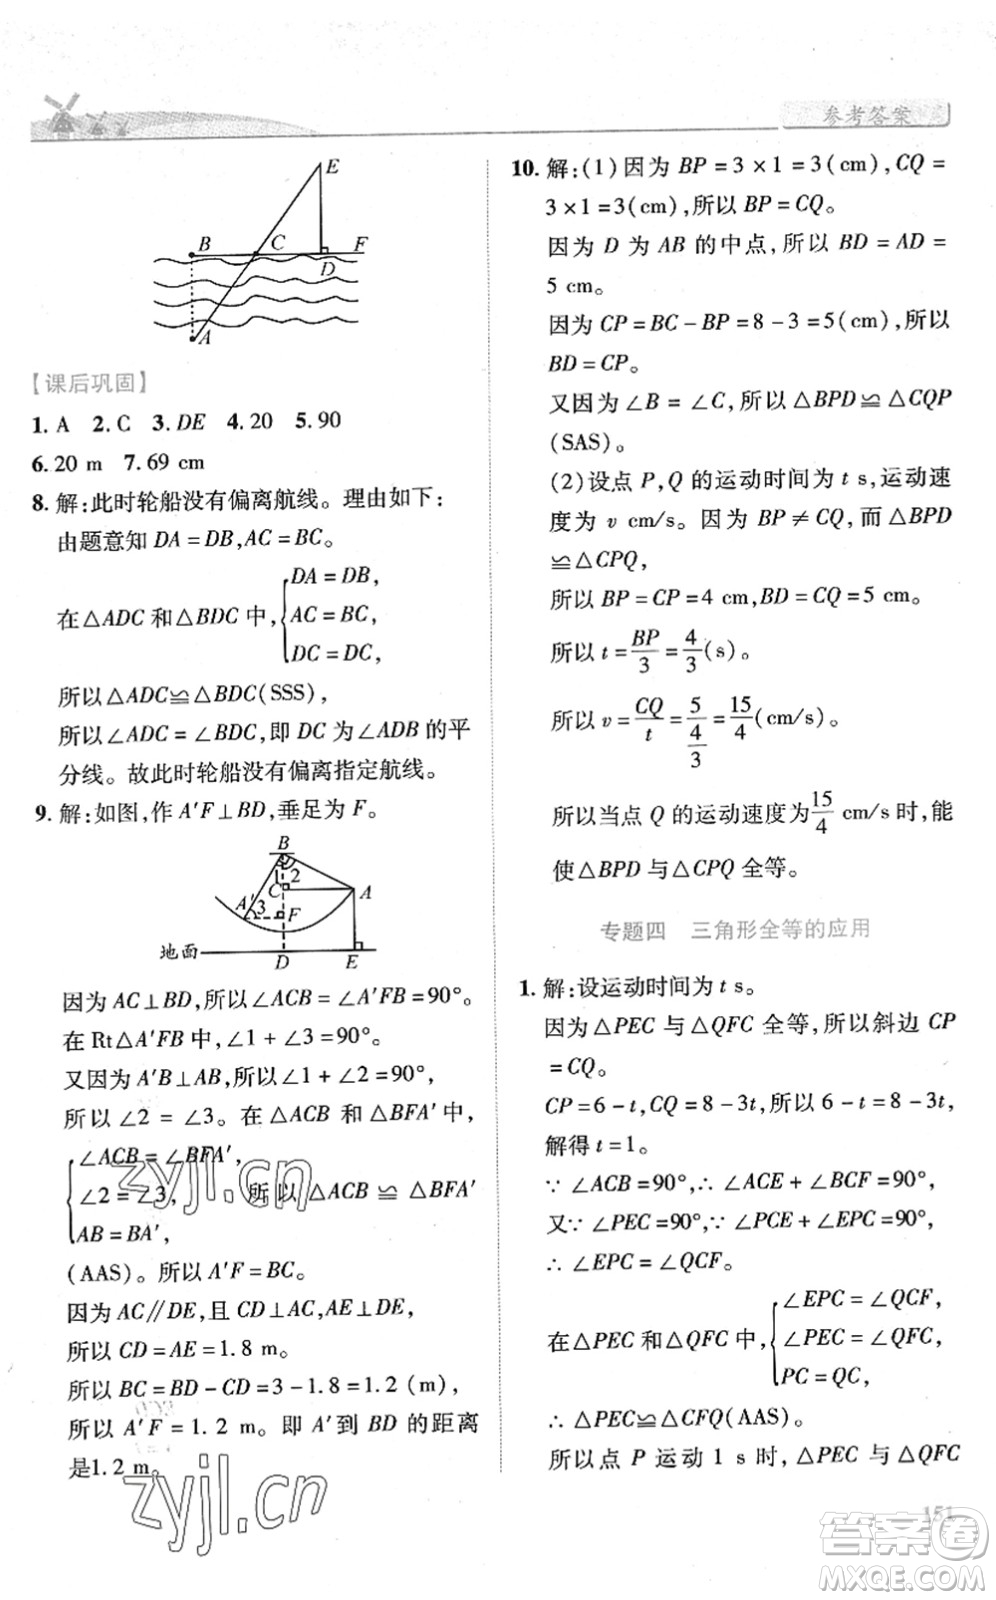 参考答案
E
B
C
F
D
A
【课后巩固】
1. A 2. C 3. DE 4. 20 5. 90
6. 20 m 7. 69 cm
8. 解:此时轮船没有偏离航线。理由如下:
由题意知 DA = DB, AC = BC。
在△ADC 和△BDC 中, { DA = DB, AC = BC, DC = DC,
所以△ADC≌△BDC(SSS)
所以∠ADC = ∠BDC,即 DC 为∠ADB 的平
分线。故此时轮船没有偏离指定航线。
9. 解:如图,作 A′F⊥BD,垂足为 F。
B
1
2
C
A′
3
F
A
地面
D
E
因为 AC⊥BD,所以∠ACB = ∠A′FB = 90°。
在 Rt△A′FB 中,∠1 + ∠3 = 90°。
又因为 A′B⊥AB,所以∠1 + ∠2 = 90°,
所以∠2 = ∠3。在△ACB 和△BFA′中,
{ ∠ACB = ∠BFA′, ∠2 = ∠3, AB = BA′, 所以△ACB≌△BFA′
(AAS)。所以 A′F = BC。
因为 AC∥DE,且 CD⊥AC, AE⊥DE,
所以 CD = AE = 1.8 m。
所以 BC = BD − CD = 3 − 1.8 = 1.2 (m),
所以 A′F = 1.2 m。即 A′到 BD 的距离
是1.2 m。
10. 解:(1)因为 BP = 3 × 1 = 3(cm), CQ =
3 × 1 = 3(cm),所以 BP = CQ。
因为 D 为 AB 的中点,所以 BD = AD =
5 cm。
因为 CP = BC − BP = 8 − 3 = 5(cm),所以
BD = CP。
又因为∠B = ∠C,所以△BPD≌△CQP
(SAS)。
(2)设点 P, Q 的运动时间为 t s,运动速
度为 v cm/s。因为 BP ≠ CQ,而△BPD
≌△CPQ,
所以 BP = CP = 4 cm, BD = CQ = 5 cm。
所以 t = BP/3 = 4/3 (s)。
所以 v = CQ/t = 5/(4/3) = 15/4 (cm/s)。
所以当点 Q 的运动速度为 15/4 cm/s 时,能
使△BPD 与△CPQ 全等。
专题四 三角形全等的应用
1. 解:设运动时间为 t s。
因为△PEC 与△QFC 全等,所以斜边 CP
= CQ。
CP = 6 − t, CQ = 8 − 3t,所以 6 − t = 8 − 3t,
解得 t = 1。
∵ ∠ACB = 90°,∴ ∠ACE + ∠BCF = 90°。
又∵ ∠PEC = 90°,∵ ∠PCE + ∠EPC = 90°,
∴ ∠EPC = ∠QCF。
在△PEC 和△QFC 中, { ∠EPC = ∠QCF, ∠PEC = ∠QFC, PC = QC,
∴ △PEC≌△CFQ(AAS)。
所以点 P 运动 1 s 时,△PEC 与△QFC
151
zyjl.cn
zyjl.cn
答案圈
MXQE.COM